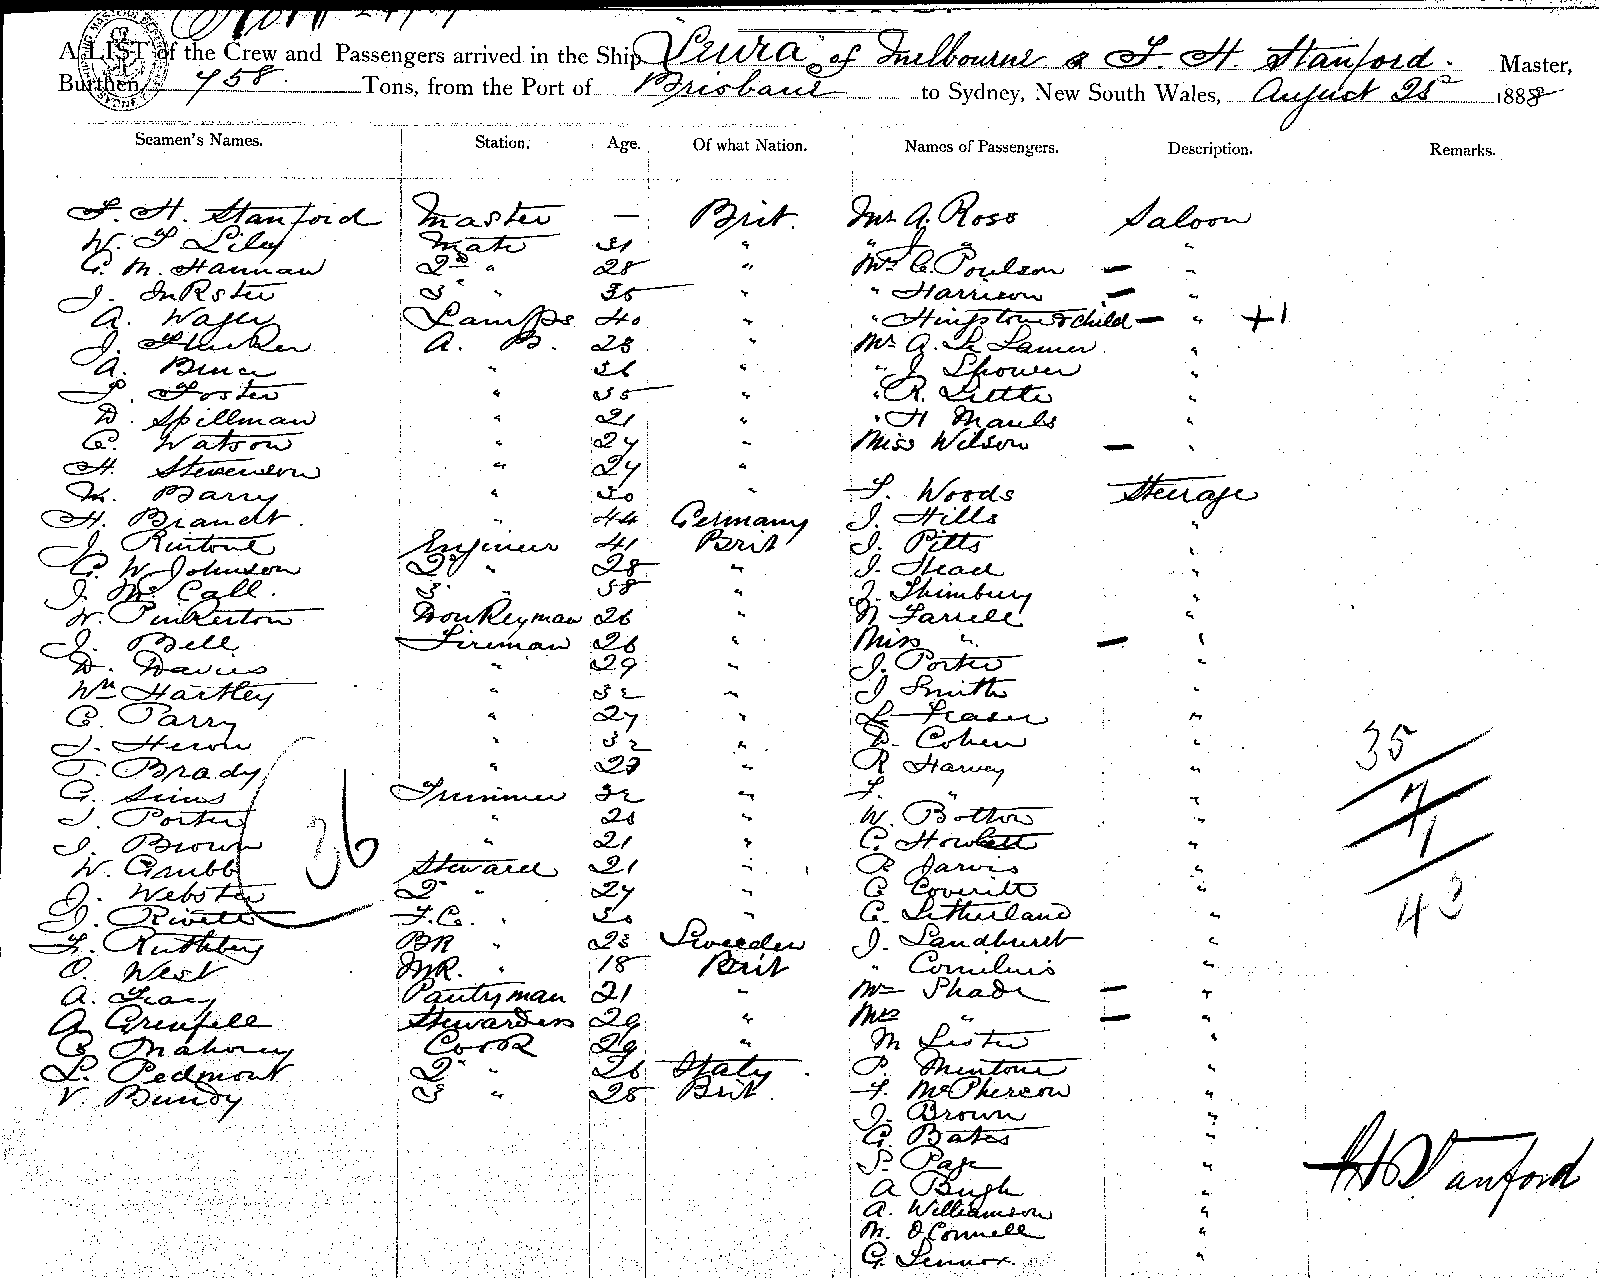 A LIST of the Crew and Passengers arrived in the Ship Leura of Melbourne F. H. Stanford. Master,
Burthen 458 Tons, from the Port of Brisbane to Sydney, New South Wales, August 25 1888
Seamen's Names. Station. Age. Of what Nation. Names of Passengers. Description. Remarks.
F. H. Stanford Master — Brit. Mr A. Ross Saloon
W. F Lily Mate 31 " " J. " "
C. M. Hannan 2nd " 28 " Mrs C. Poulson — "
J. Inkster 3 " 35 " " Harrison — "
A. Wager Lamps 40 " " Hingston & child — " +1
J. Flucker A. B. 23 " Mr A. Le Lamer "
A. Bruce " 36 " " J Shower "
Foster " 35 " " R. Little "
D. Spillman " 21 " " H Mauls "
C. Watson " 27 " Miss Wilson — "
H. Stevenson " 27 "
M. Barry " 30 " F. Woods Steerage
H. Brandt. " 44 Germany J. Hills "
J. Rintoul Engineer 41 Brit J. Pitts "
C. W. Johnson 2 " 28 " J. Head "
J. McCall. 3 " 38 " J. Thimbury "
W. Pinkerton Donkeyman 26 " N Farrell "
J. Bell Fireman 26 " Miss " — "
D. Davies " 29 " J. Porter "
Wm Hartley " 32 " J Smith "
C. Parry " 27 " L Fraser "
J. Heron " 32 " D. Cohen " 35
T. Brady " 23 " R Harvey "
G. Sims Trimmer 32 " F. " " 7
J. Porter " 20 " W. Botton " 1
J. Brown 36 " 21 " C. Howlett "
W. Grubb Steward 21 " R Jarvis "
J. Webster 2 " 27 " C Coveritt "
J. Rivett F.C. " 30 " C. Litherland " 43
F. Ruthberg BR " 23 Sweeden J. Landhurst "
O. West MR. " 18 Brit " Cornelius "
A. Gray Pantryman 21 " Mr Shade — "
A. Grenfell Stewardess 29 " Mrs " — "
C. Mahoney Cook 29 " M Lister "
L. Pedmont 2 " 26 Italy P. Mintone "
V. Bundy 3 " 25 Brit. F. McPherson "
J. Brown "
G. Bates "
P. Page "
A Bugh "
A. Williamson "
M. O'Connell "
G. Lennox. "
F H Stanford